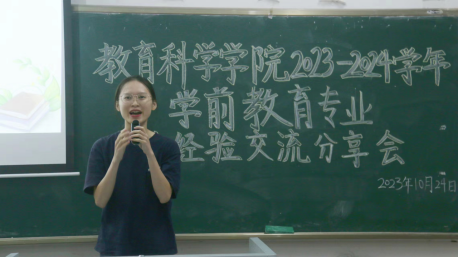 教育科学学院2023-2024学年
学前教育专业
经验交流分享会
2023年10月29日